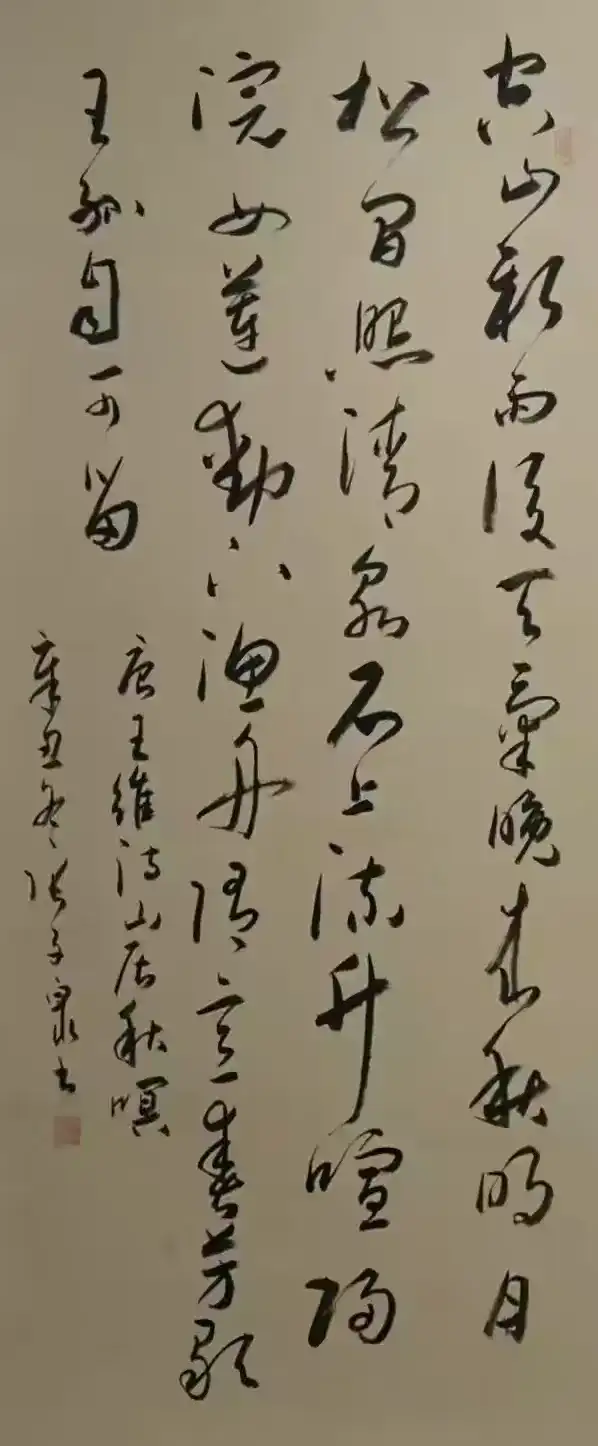 空山新雨後天氣晚來秋明月
松間照清泉石上流竹喧歸
浣女蓮動下漁舟隨意春芳歇
王孫自可留
唐王維詩山居秋暝
辛丑冬張子泉書